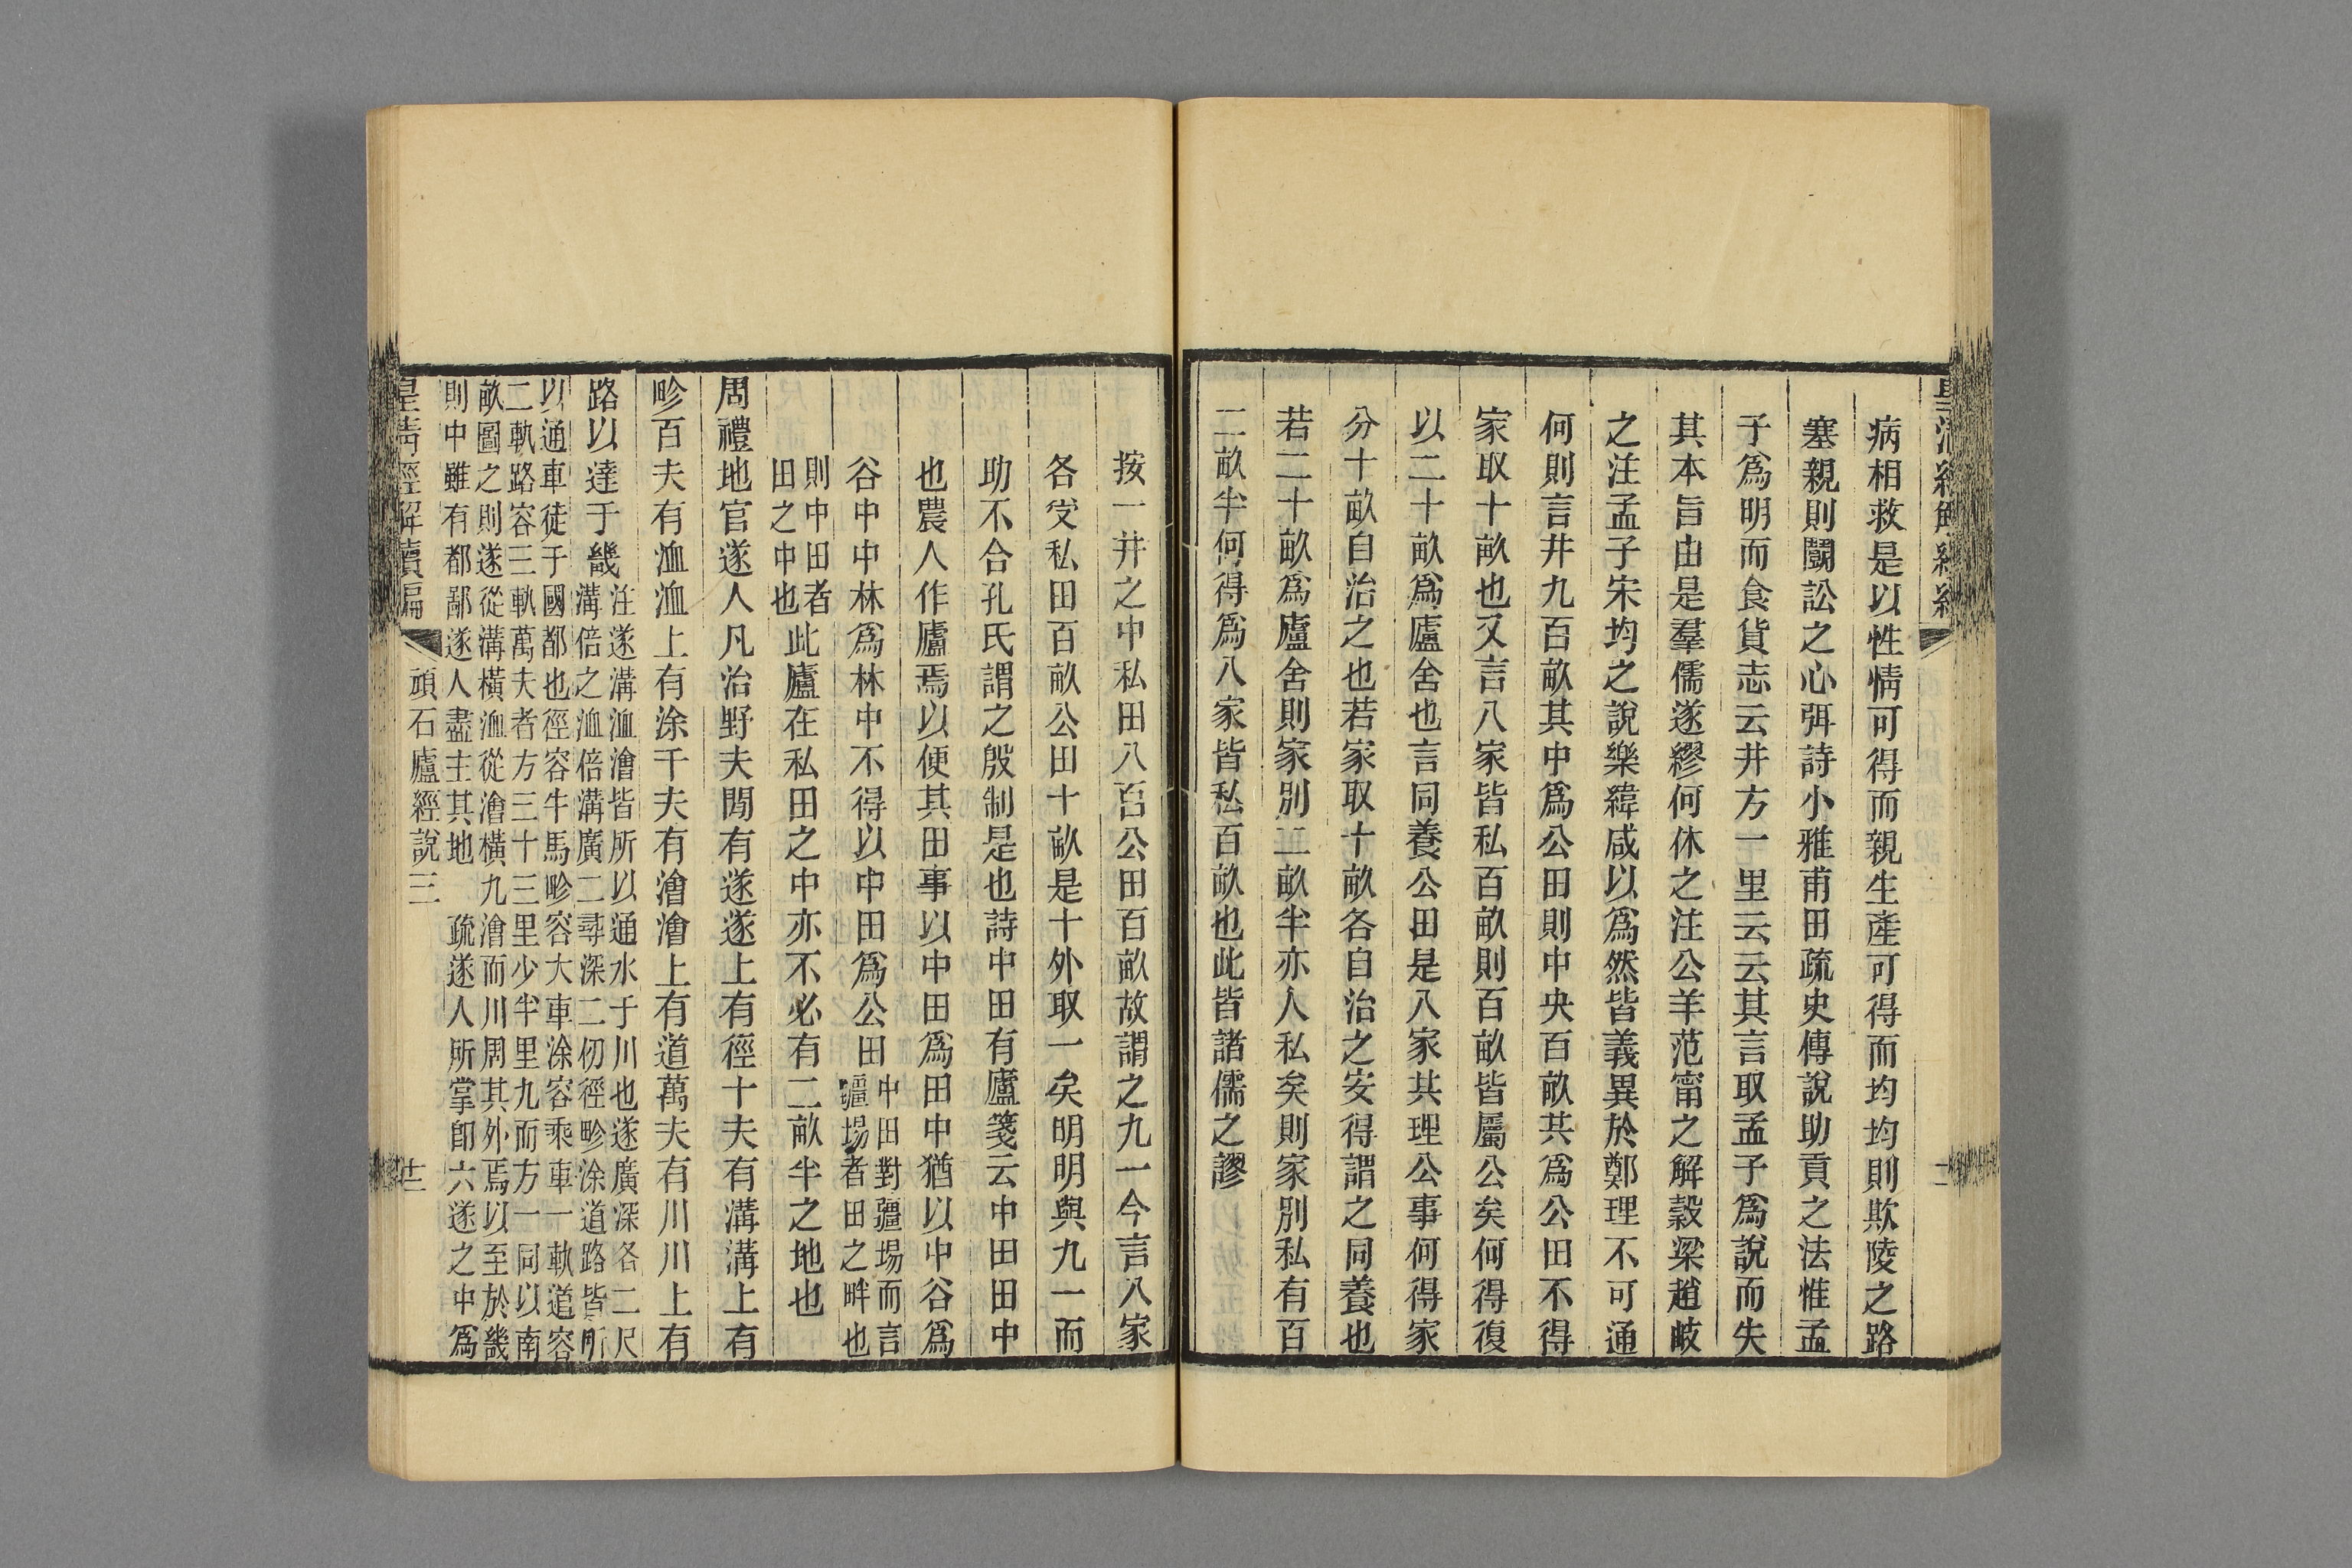 病相救是以性情可得而親生產可得而均均則欺陵之路
塞親則鬭訟之心弭詩小雅甫田疏史傳說助貢之法惟孟
子爲明而食貨志云井方一里云云其言取孟子爲說而失
其本旨由是羣儒遂繆何休之注公羊范甯之解穀梁趙岐
之注孟子宋均之說樂緯咸以爲然皆義異於鄭理不可通
何則言井九百畝其中爲公田則中央百畝共爲公田不得
家取十畝也又言八家皆私百畝則百畝皆屬公矣何得復
以二十畝爲廬舍也言同養公田是八家共理公事何得家
分十畝自治之也若家取十畝各自治之安得謂之同養也
若二十畝爲廬舍則家別二畝半亦入私矣則家別私有百
二畝半何得爲八家皆私百畝也此皆諸儒之謬
按一井之中私田八百公田百畝故謂之九一今言八家
各受私田百畝公田十畝是十外取一矣明明與九一而
助不合孔氏謂之殷制是也詩中田有廬箋云中田田中
也農人作廬焉以便其田事以中田爲田中猶以中谷爲
谷中中林爲林中不得以中田爲公田
中田對疆場而言
疆場者田之畔也
則中田者
田之中也
此廬在私田之中亦不必有二畝半之地也
周禮地官遂人凡治野夫閒有遂遂上有徑十夫有溝溝上有
畛百夫有洫洫上有涂千夫有澮澮上有道萬夫有川川上有
路以達于畿
注遂溝洫澮皆所以通水于川也遂廣深各二尺
溝倍之洫倍溝廣二尋深二仞徑畛涂道路皆所
以通車徒于國都也徑容牛馬畛容大車涂容乘車一軌道容
二軌路容三軌萬夫者方三十三里少半里九而方一同以南
畝圖之則遂從溝橫洫從澮橫九澮而川周其外焉以至於畿
則中雖有都鄙遂人盡主其地 疏遂人所掌卽六遂之中爲
皇清經解續編 頑石廬經說三 十二